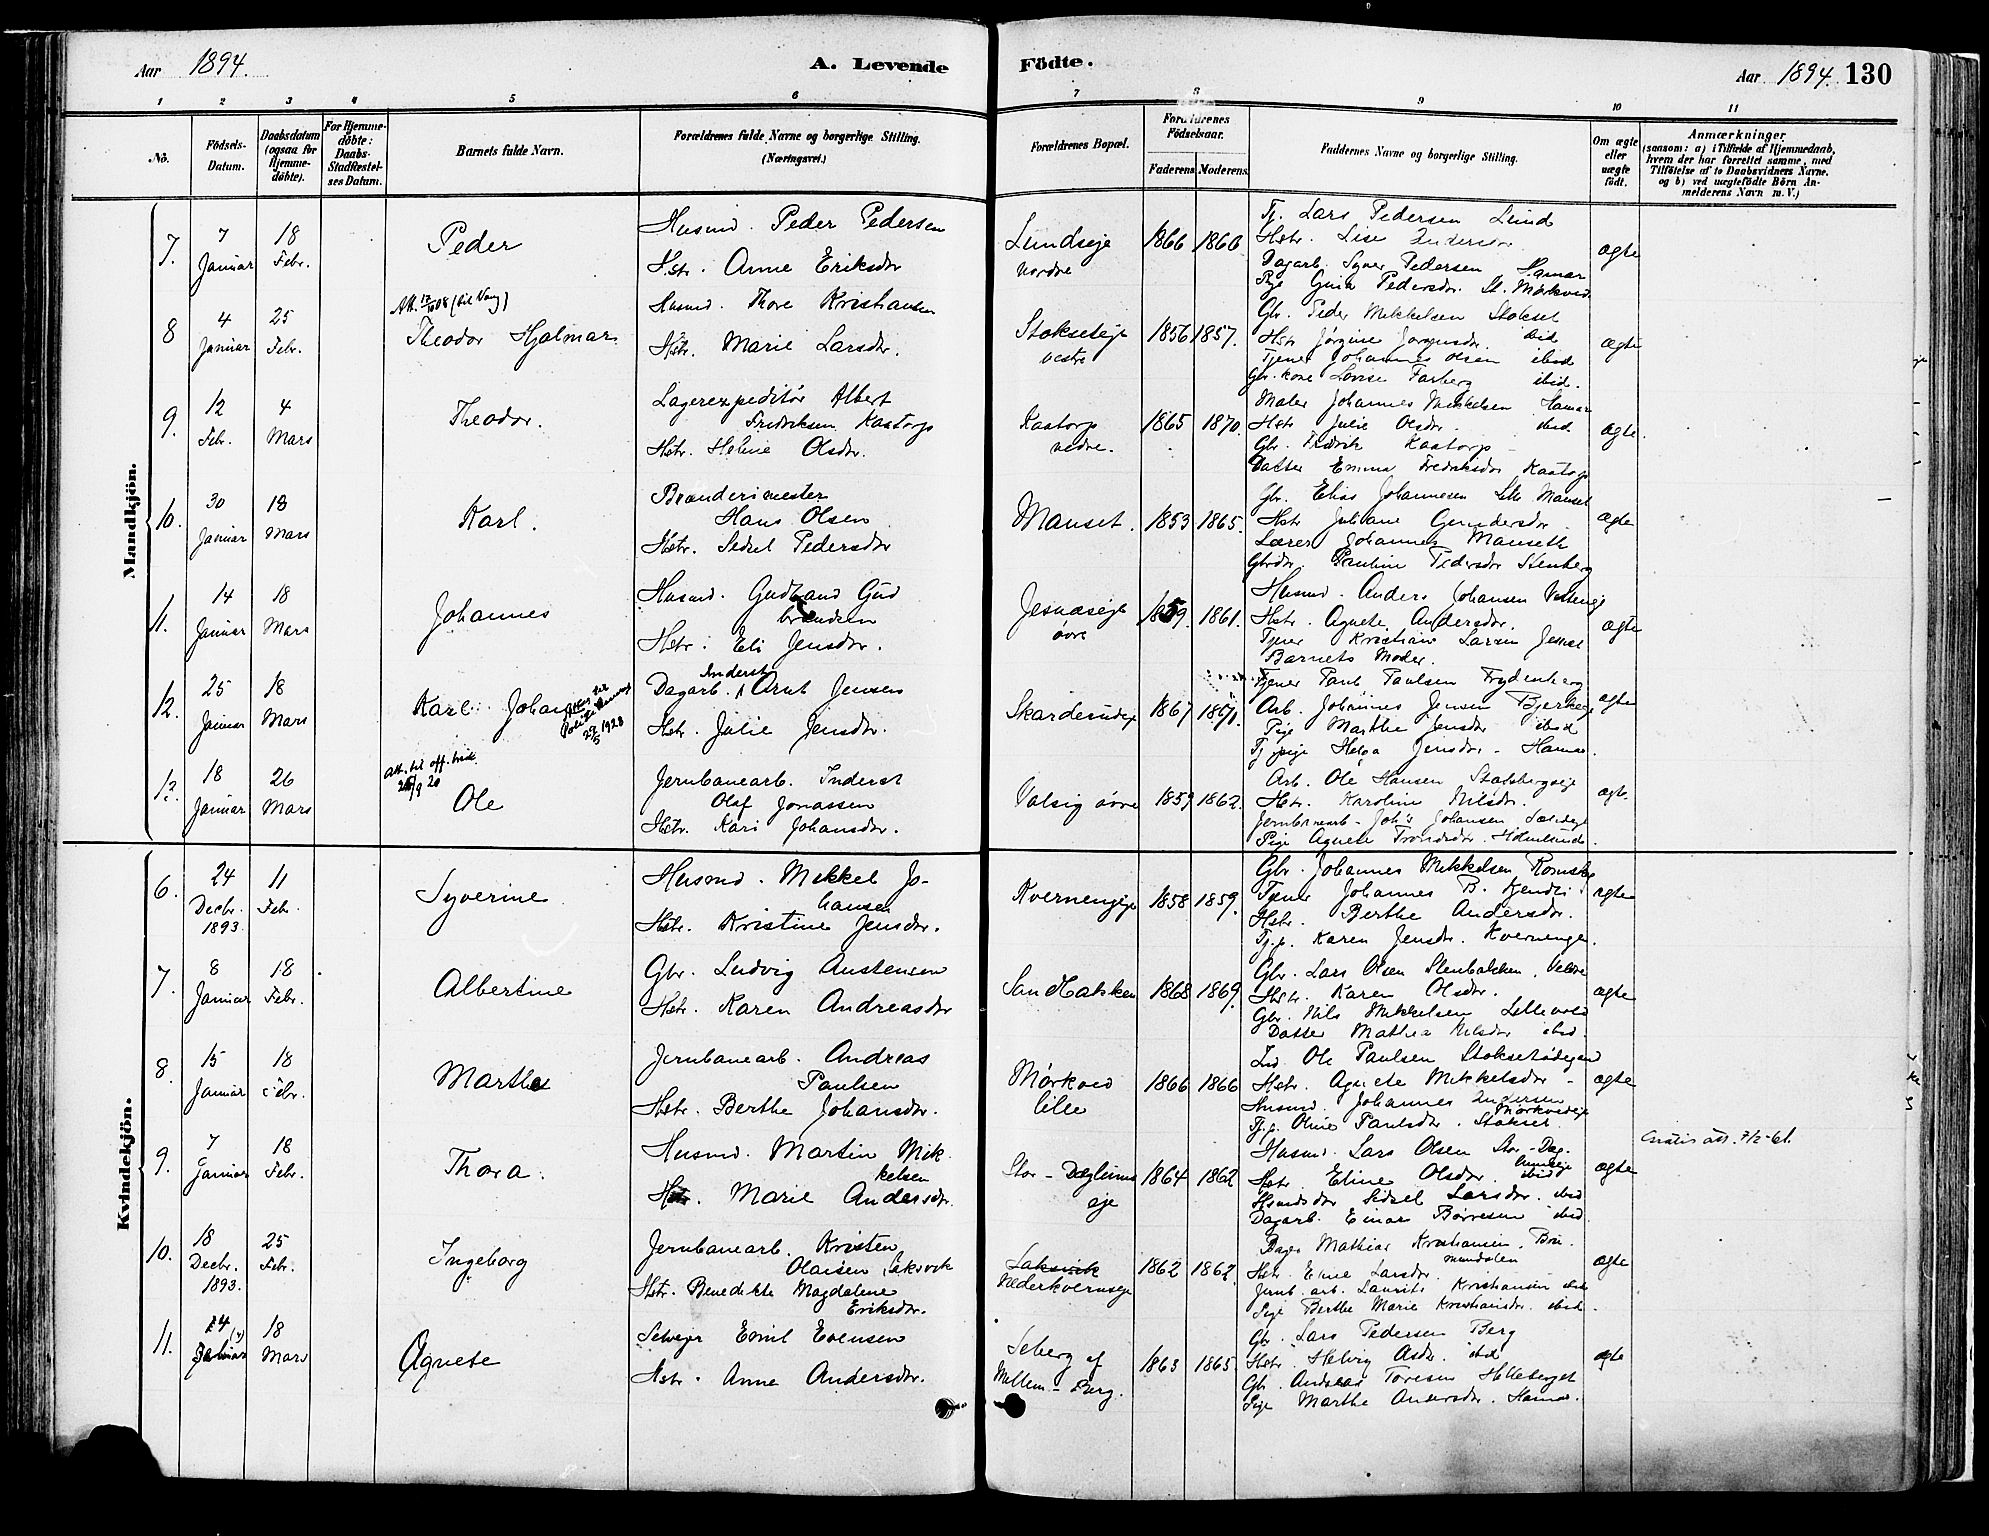 Aar 1894. A. Levende Födte. Aar 1894. 130
1 2 3 4 5 6 7 8 9 10 11
No. Födsels-Datum. Daabsdatum (ogsaa for Hjemmedöbte). For Hjemmedöbte: Daabs-Stadfæstelses Datum. Barnets fulde Navn. Forældrenes fulde Navne og borgerlige Stilling. (Næringsvei.) Forældrenes Bopæl. Forældrenes Födselsaar. Faderens Moderens Faddernes Navne og borgerlige Stilling. Om ægte eller uægte födt. Anmærkninger
(saasom: a) i Tilfælde af Hjemmedaab, hvem der har forrettet samme, med Tilföielse af to Daabsvidners Navne. og b) ved uægtefödte Börn Anmelderens Navn m. V.)
Mandkjön.
7. 7 Januar 18 Febr. Peder
Husmd. Peder Pedersen
Hstr. Anne Eriksdtr
Lundseje nordre 1866 1860
Tj. Lars Pedersen Lund
Hstr. Lise Andersdtr
Dagarb. Syver Pedersen Hamar
Pige Gina Pedersdtr. St. Mørkved
ægte
8 4 Januar 25 Febr. (til Navg)
Theodor Hjalmar
Husmd. Thore Kristiansen
Hstr. Marie Larsdtr.
Stokseteje vestre 1856 1857.
Gbr. Peder Mikkelsen Stokset
Hstr Jørgine Jørgensdtr. ibid
Tjener Johannes Olsen ibid
Gbr. kone Lovise Farberg ibid.
ægte
9. 12 Febr. 4 Mars Theodor.
Lagerexpeditør Albert
Fredriksen Kaatorp
Hstr. Helene Olsdtr.
Kaatorp nedre. 1865 1870.
Maler Johannes Mikkelsen Hamar
Hstr Julie Olsdtr. ibid
Gbr. Fredrik Kaatorp
Datter Emma Fredriksdtr Kaatorp
ægte.
10. 30 Januar 18 Mars Karl.
Brænderimester
Hans Olsen
Hstr. Sidsel Pedersdtr
Manset. 1853 1865.
Gbr. Elias Johannesen Lille Manset
Hstr Juliane Gundersdtr
Lærer Johannes Manseth
Gbrdtr. Pauline Pedersdtr Stenberg
ægte
11. 14 Januar 18 Mars Johannes
Husmd. Gudbrand Gud
brandsen
Hstr. Eli Jensdtr.
Jesnæseje øvre 1859. 1861.
Husmd. Anders Johansen
Hstr. Agnete Andersdtr.
Tjener Kristian Larsen
Barnets Moder.
ægte
12. 25 Januar 18 Mars Karl Johan
1928
Inderst
Dagarb. Arnt Jensen
Hstr. Julie Jensdtr.
Skarderudeje 1867 1871.
Tjener Paul Paulsen Frydenberg
Arb. Johannes Jensen Bjerkeeje
Pige Marthe Jensdtr ibid
Tj.pige Helga Jensdtr - Hamar.
ægte
13. 18 Januar 26 Mars
Att. til off. bruk
Ole
Jernbanearb. Inderst
Olaf Jonassen
Hstr. Kari Johansdtr.
Valsig øvre 1859 1862.
Arb. Ole Hansen
Hstr. Karoline Nilsdtr.
Jernbanearb. Johs Johansen
Pige Agnete Trondsdtr.
ægte
Kvindekjön.
6. 24 Decbr. 1893. 11 Febr. Syverine
Husmd. Mikkel Jo-
hansen
Hstr. Kristine Jensdtr.
Kvernengeje 1858 1859.
Gbr. Johannes Mikkelsen
Tjener Johannes B.
Hstr. Berthe Andersdtr.
Tj.p. Karen Jensdtr. Kvernengen.
ægte
7. 8 Januar 18 Febr. Albertine
Gbr. Ludvig Austensen
Hstr. Karen Andreasdtr
Sandbakken 1868 1869.
Gbr. Lars Olsen Stenbakken, Veldre
Hstr. Karen Olsdtr.
Gbr. Nils Mikkelsen Lillevold
Datter Mathea Nilsdtr ibid.
ægte
8. 15 Januar 18 Febr. Marthe
Jernbanearb. Andreas
Paulsen
Hstr. Berthe Johansdtr.
Mørkved lille 1866 1866
Ind. Ole Paulsen
Hstr. Agnete Mikkelsdtr -
Husmd. Johannes Andersen
Mørkvedeje
Tj.p. Oline Paulsdtr. Stokset.
ægte
9. 7 Januar 18 Febr. Thora.
Husmd. Martin Mik-
kelsen
Hstr. Marie Andersdtr.
Stor-Dæglums eje 1864 1862
Husmd. Lars Olsen Stor-Dæg-
lumseje
Hstr. Eline Olsdtr. ibid
Husmdsdtr Sidsel Larsdtr. ibid
Dagarb. Einar Børresen ibid.
ægte
Gratis att. 7/2-61.
10. 18 Decbr. 1893. 25 Febr. Ingeborg
Jernbanearb. Kristen
Olausen Saksvik
Hstr. Benedikte Magdalene
Eriksdtr.
Saksvik
Nederkvernseje 1862 1862.
Bager Mathias Kristiansen, Bru-
mundalen
Hstr. Eline Larsdtr.
Jernb. arb. Laurits Kristiansen ibid
Pige Berthe Marie Kristiansdtr. ibid.
ægte
11. 24 Januar 18 Mars Agnete
Selveier Emil Evensen
Hstr. Anne Andersdtr.
Seberg af
Mellem-Berg. 1863 1865
Gbr. Lars Pedersen Berg
Hstr. Helvig Asdtr. ibid
Gbr. Andreas Toresen Helleberget
Pige Marthe Andersdtr. Hamar.
ægte